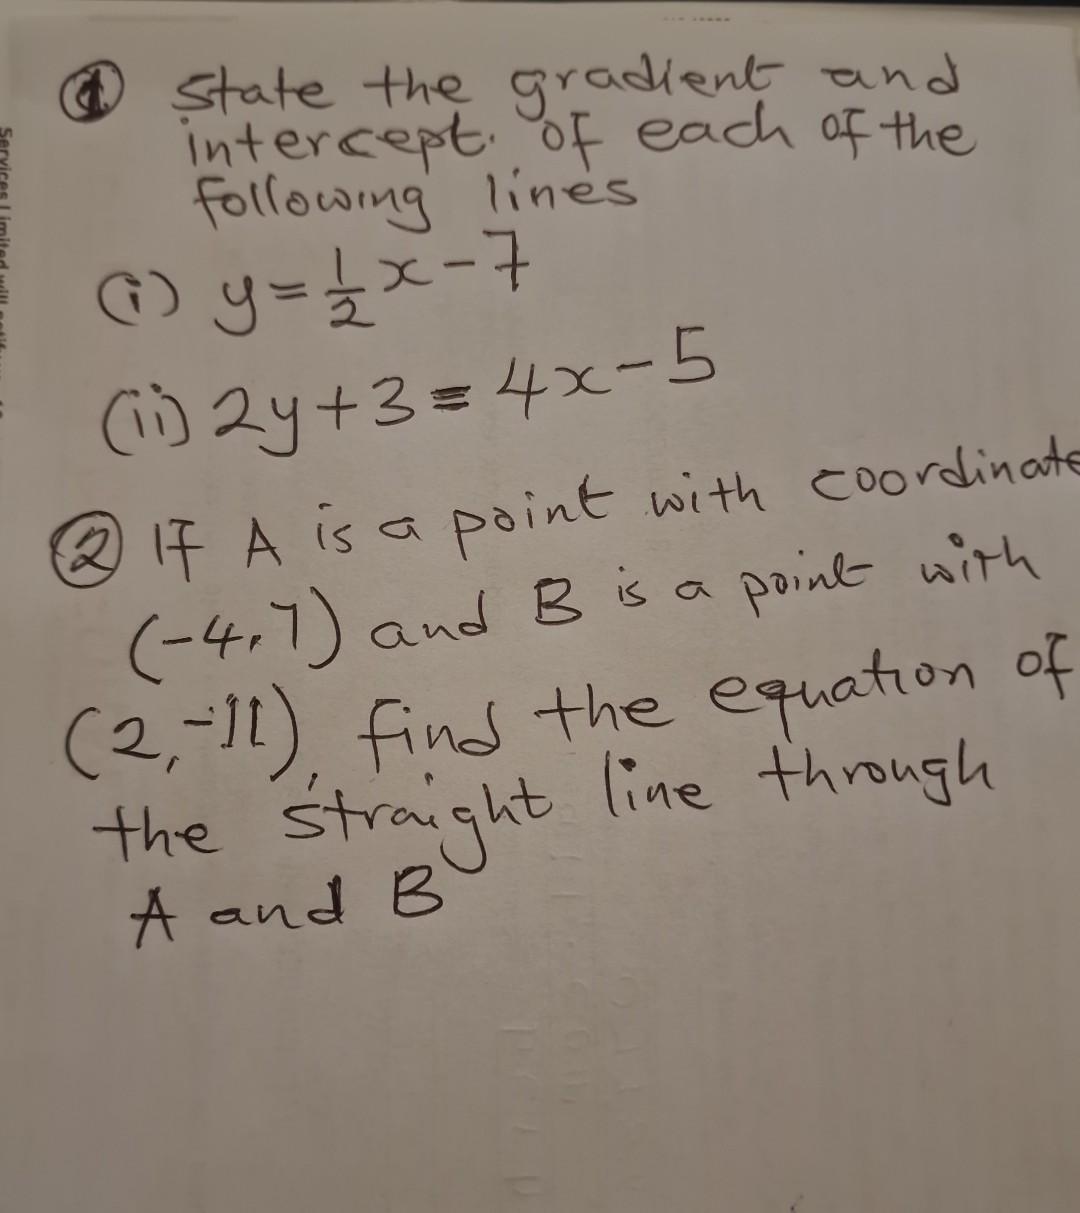 ① State the gradient and
intercept. of each of the
following lines
(i) y = 1/2 x - 7
(ii) 2y + 3 = 4x - 5
② If A is a point with coordinate
(-4, 7) and B is a point with
(2, -11), find the equation of
the straight line through
A and B
Services Limited will